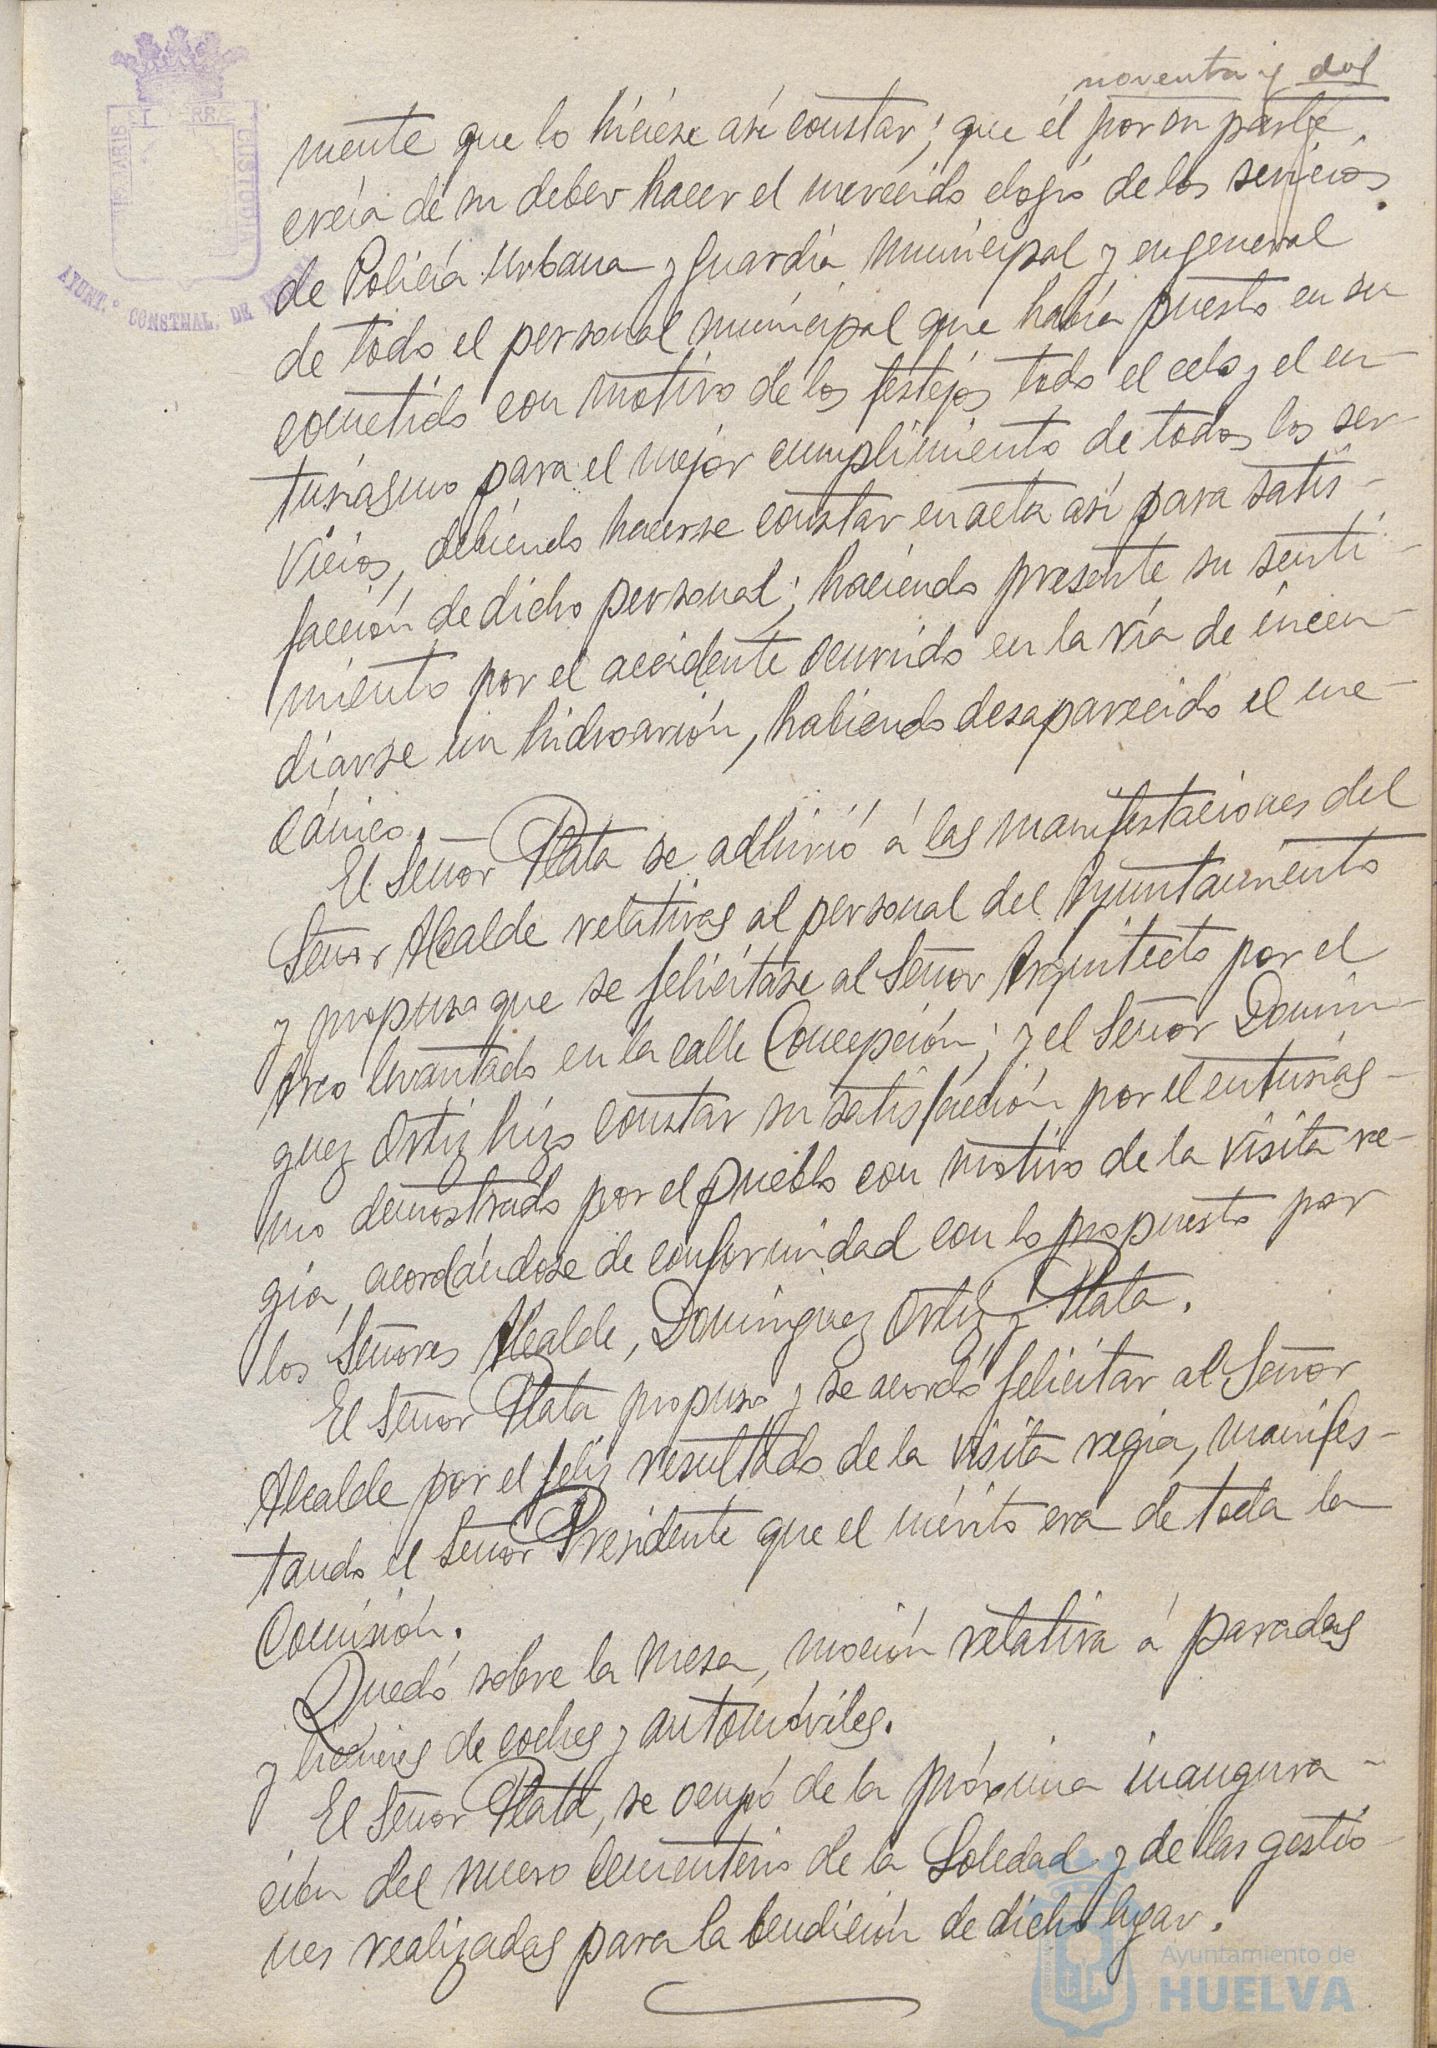 noventa y dos
mente que lo hiciese así constar; que él por su parte
creía de su deber hacer el merecido elogio de los servicios
de Policía Urbana y Guardia Municipal y en general
de todo el personal municipal que había puesto en su
cometido con motivo de los festejos todo el celo y el en-
tusiasmo para el mejor cumplimiento de todos los ser-
vicios, debiendo hacerse constar en acta así para satis-
facción de dicho personal; haciendo presente su senti-
miento por el accidente ocurrido en la ría de incen-
diarse un hidroavión, habiendo desaparecido el me-
cánico.
El Señor Plata se adhirió á las manifestaciones del
Señor Alcalde relativas al personal del Ayuntamiento
y propuso que se felicitase al Señor Arquitecto por el
Arco levantado en la calle Concepción; y el Señor Domín-
guez Ortiz hizo constar su satisfacción por el entusias-
mo demostrado por el pueblo con motivo de la visita re-
gia, acordándose de conformidad con lo propuesto por
los Señores Alcalde, Dominguez Ortiz y Plata.
El Señor Plata propuso y se acordó felicitar al Señor
Alcalde por el feliz resultado de la visita regia, manifes-
tando el Señor Presidente que el mérito era de toda la
Comisión.
Quedó sobre la mesa, moción relativa á paradas
y de coches y automóviles.
El Señor Plata, se ocupó de la próxima inaugura-
ción del nuevo Cementerio de la Soledad y de las gestio-
nes realizadas para la bendición de dicho lugar.
AYUNT.º CONSTNAL. DE
CUSTODIA
Ayuntamiento de
HUELVA